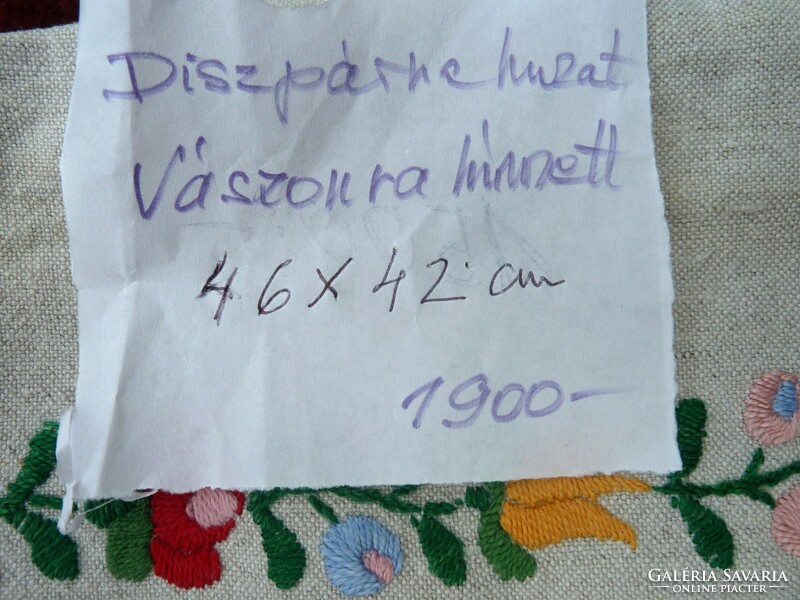 Diszpárna huzat
Vászonra himzett
46 x 42 cm
1900-
GALÉRIA SAVARIA
ONLINE PIACTÉR